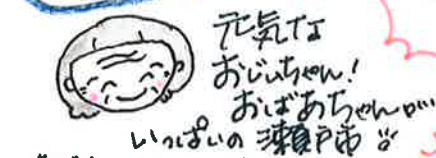 元気な
おじいちゃん!
おばあちゃんが…
いっぱいの瀬戸市